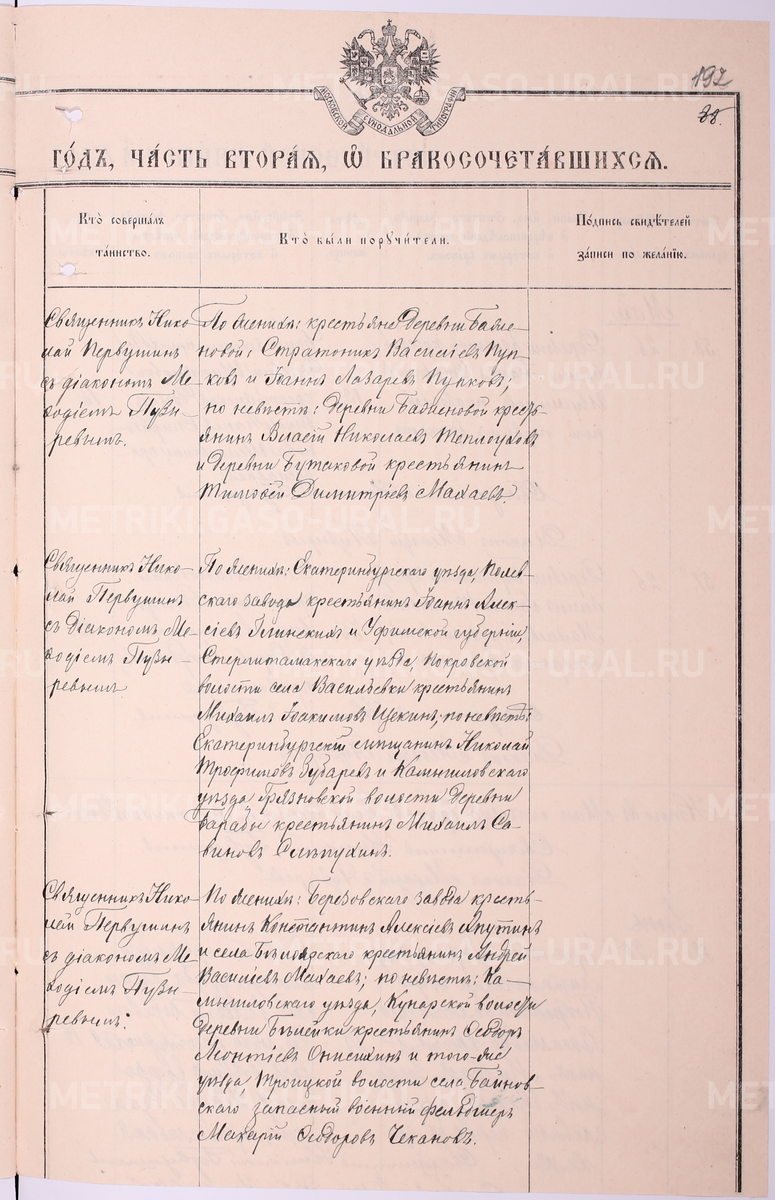 192
88.
МОСКОВСКОЙ СѴНОДАЛЬНОЙ ТИПОГРАФІИ
ГО́ДЪ, ЧА́СТЬ ВТОРА́Я, Ѿ БРАКОСОЧЕТА́ВШИХСЯ.
Кто̀ совершалъ
та́инство.
Кто̀ бы́ли поручи́тели.
По́дпись свидѣ́телей
за́писи по жела́нію.
Священникъ Нико-
лай Первушинъ
съ діакономъ Ме-
ѳодіемъ Пузы-
ревымъ.
По женихѣ: крестьяне деревни
новой: Стратоникъ Василіевъ Пуп-
ковъ и Іоаннъ Лазаревъ Пупковъ;
по невѣстѣ: деревни кресть-
янинъ Власій Николаевъ Теплоуховъ
и деревни Бутаковой крестьянинъ
Тимоѳей Димитріевъ Махаевъ.
Священникъ Нико-
лай Первушинъ
съ діакономъ Ме-
ѳодіемъ Пузы-
ревымъ
По женихѣ: Екатеринбургскаго уѣзда, Полев-
скаго завода крестьянинъ Іоаннъ Алек-
сіевъ Глинскихъ и Уфимской губерніи,
Стерлитамакскаго уѣзда, Покровской
волости села Васильевки крестьянинъ
Михаилъ Іоакимовъ Щекинъ; по невѣстѣ:
Екатеринбургскій мѣщанинъ Николай
Трофимовъ Зубаревъ и Камышловскаго
уѣзда Грязновской волости деревни
Барабы крестьянинъ Михаилъ Са-
виновъ Слѣпухинъ.
Священникъ Нико-
лай Первушинъ
съ діакономъ Ме-
ѳодіемъ Пузы-
ревымъ.
По женихѣ: Березовскаго завода кресть-
янинъ Константинъ Алексіевъ
и села Бѣлоярскаго крестьянинъ Андрей
Василіевъ Махаевъ; по невѣстѣ: Ка-
мышловскаго уѣзда, Кунарской волости
деревни Бѣлейки крестьянинъ Ѳеодоръ
Леонтіевъ Онисихинъ и того-же
уѣзда, Троицкой волости села Байнов-
скаго запасный военный фельдшеръ
Макарій Ѳеодоровъ Чекановъ.